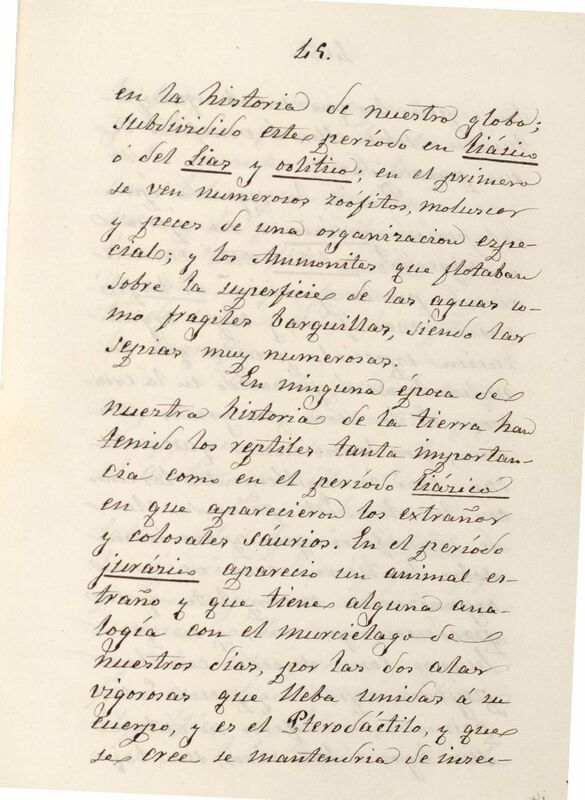 45.
en la historia de nuestro globo;
subdividido este período en liásico
ó del Lias y oolitico; en el primero
se ven numerosos zoófitos, moluscos
y peces de una organizacion espe-
cial; y los Ammonites que flotaban
sobre la superficie de las aguas co-
mo fragiles barquillas, siendo las
sepias muy numerosas.
En ninguna época de
nuestra historia de la tierra han
tenido los reptiles tanta importan-
cia como en el período liásico
en que aparecieron los extraños
y colosales sáurios. En el período
jurásico aparecio un animal es-
traño y que tiene alguna ana-
logía con el murciélago de
nuestros dias, por las dos alas
vigorosas que lleba unidas á su
cuerpo, y es el Pterodáctilo, y que
se cree se mantendria de insec-